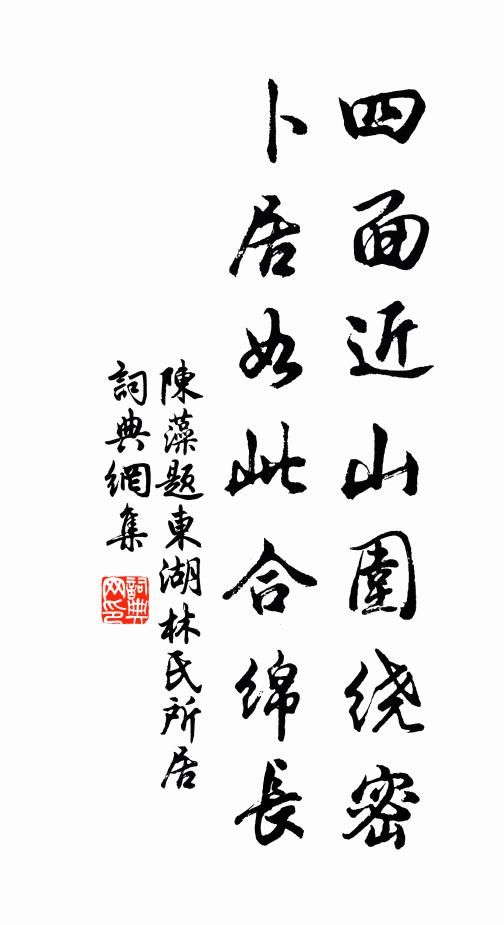 四面近山圍绕密
卜居如此合綿長
陳藻題東湖林氏所居
詞典網集
詞典网印